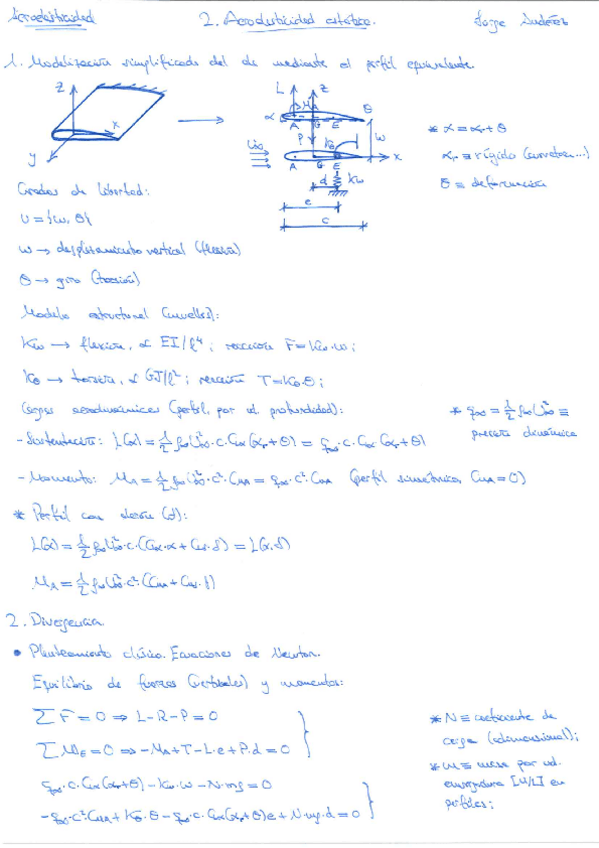 Aeroelasticidad 2. Aeroelasticidad estática. Jorge
1. Modelización simplificada del ala mediante el perfil equivalente.
Z x y
L M_A Z
α A G E θ
P K_θ w
U∞ A G E x
d K_w
e
c
* α = α_r + θ
α_r ≡ rígido (curvatura...)
θ ≡ deformación
Grados de libertad:
U = {w, θ}
w → desplazamiento vertical (flexión)
θ → giro (torsión)
Modelo estructural (muelles):
K_w → flexión, α EI/l⁴; reacción F = K_w·w;
K_θ → torsión, α GJ/l²; reacción T = K_θ·θ;
Cargas aerodinámicas (perfil, por ud. profundidad):
* q∞ = 1/2 ρ∞U∞² ≡ presión dinámica
- Sustentación: L(α) = 1/2 ρ∞U∞²·c·C_Lα(α_r+θ) = q∞·c·C_Lα(α_r+θ)
- Momento: M_A = 1/2 ρ∞U∞²·c²·C_MA = q∞·c²·C_MA (perfil simétrico, C_MA = 0)
* Perfil con alerón (δ):
L(α) = 1/2 ρ∞U∞²·c·(C_Lα·α + C_Lδ·δ) = L(α,δ)
M_A = 1/2 ρ∞U∞²·c²·(C_MA + C_Mδ·δ)
2. Divergencia.
• Planteamiento clásico. Ecuaciones de Newton.
Equilibrio de fuerzas (verticales) y momentos:
∑F = 0 ⇒ L - R - P = 0
∑M_E = 0 ⇒ -M_A + T - L·e + P·d = 0
q∞·c·C_Lα(α_r+θ) - K_w·w - N·mg = 0
-q∞·c²·C_MA + K_θ·θ - q∞·c·C_Lα(α_r+θ)e + N·mg·d = 0
* N ≡ coeficiente de
carga (adimensional);
* m ≡ masa por ud.
envergadura [M/L] en
perfiles;